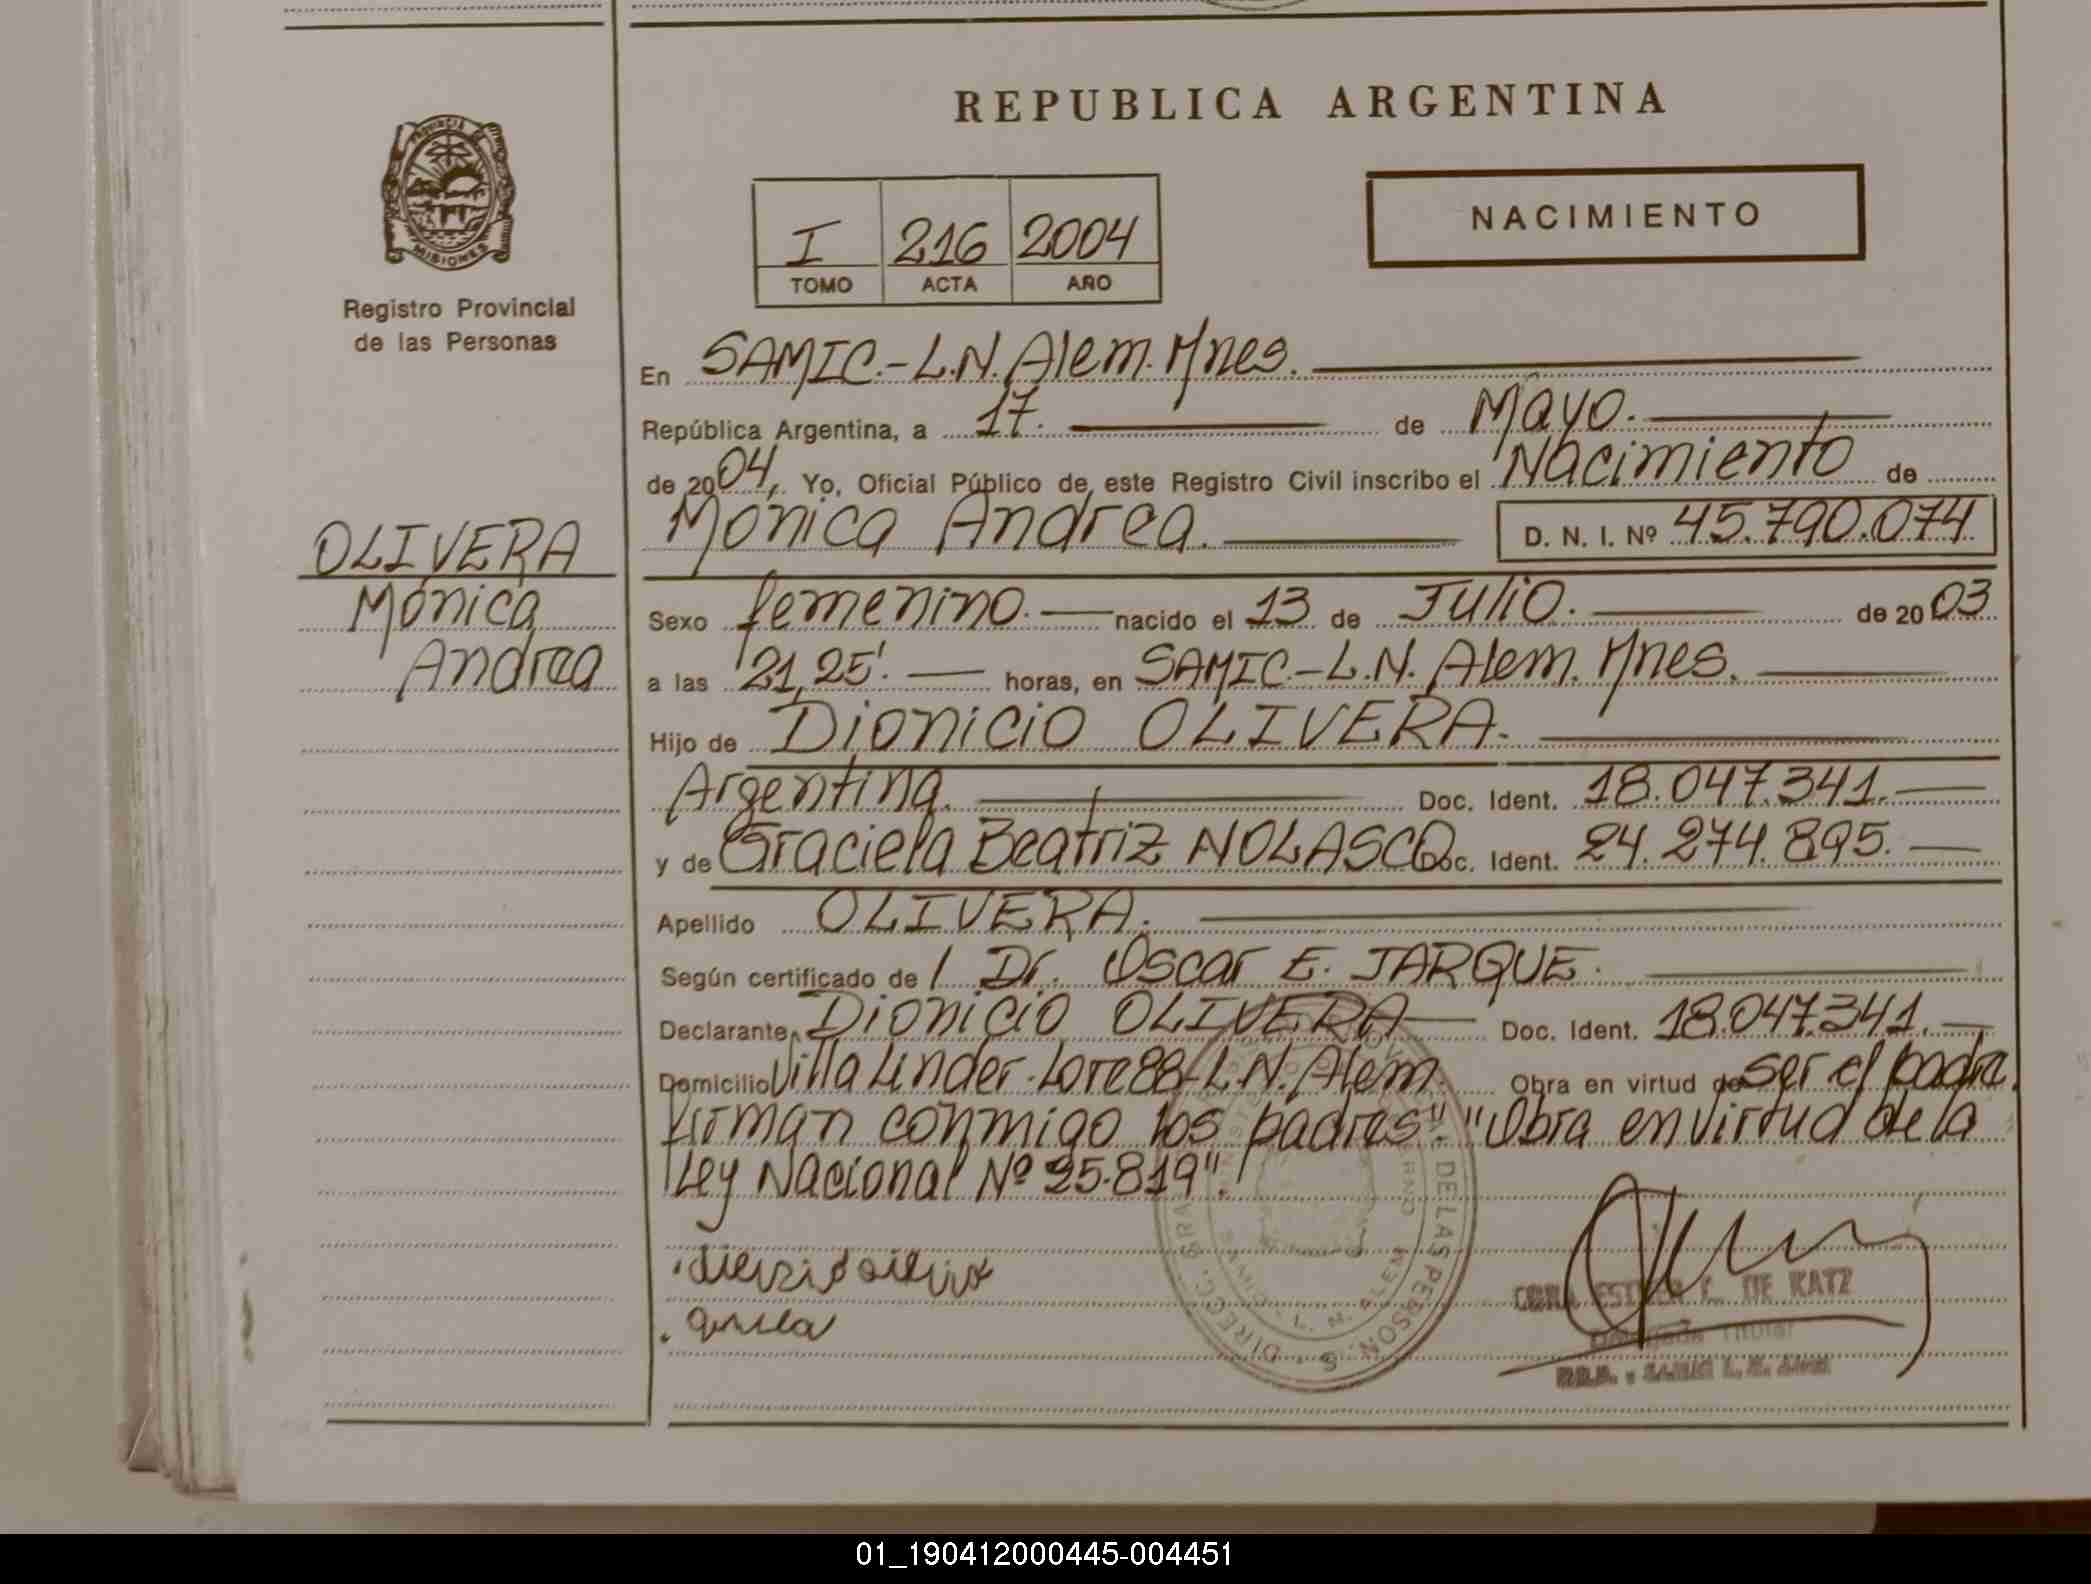 REPUBLICA ARGENTINA
PROVINCIA DE
MISIONES
Registro Provincial
de las Personas
I 216 2004
TOMO ACTA AÑO
NACIMIENTO
En SAMIC.-L.N.Alem.Mnes.
República Argentina, a 17. de Mayo.
de 2004, Yo, Oficial Público de este Registro Civil inscribo el Nacimiento de
Mónica Andrea. D. N. I. Nº 45.790.074
OLIVERA
Mónica
Andrea
Sexo femenino. nacido el 13 de Julio. de 2003
a las 21,25'. horas, en SAMIC-L.N. Alem. Mnes.
Hijo de Dionicio OLIVERA.
Argentina. Doc. Ident. 18.047.341.
y de Graciela Beatriz NOLASCO Doc. Ident. 24.274.895.
Apellido OLIVERA.
Según certificado de / Dr. Oscar E. JARQUE.
Declarante, Dionicio OLIVERA Doc. Ident. 18.047.341.
Domicilio Villa Linder-Lote 88-L.N. Alem. Obra en virtud de ser el padre.
Firman conmigo los padres". "Obra en virtud de la
Ley Nacional Nº 25.819".
DIRECC. GRAL. DE LAS PERSONAS
SAMIC - L. N. ALEM
ESTHER C. DE KATZ
Delegada Titular
SAMIC L. N. ALEM
01_190412000445-004451